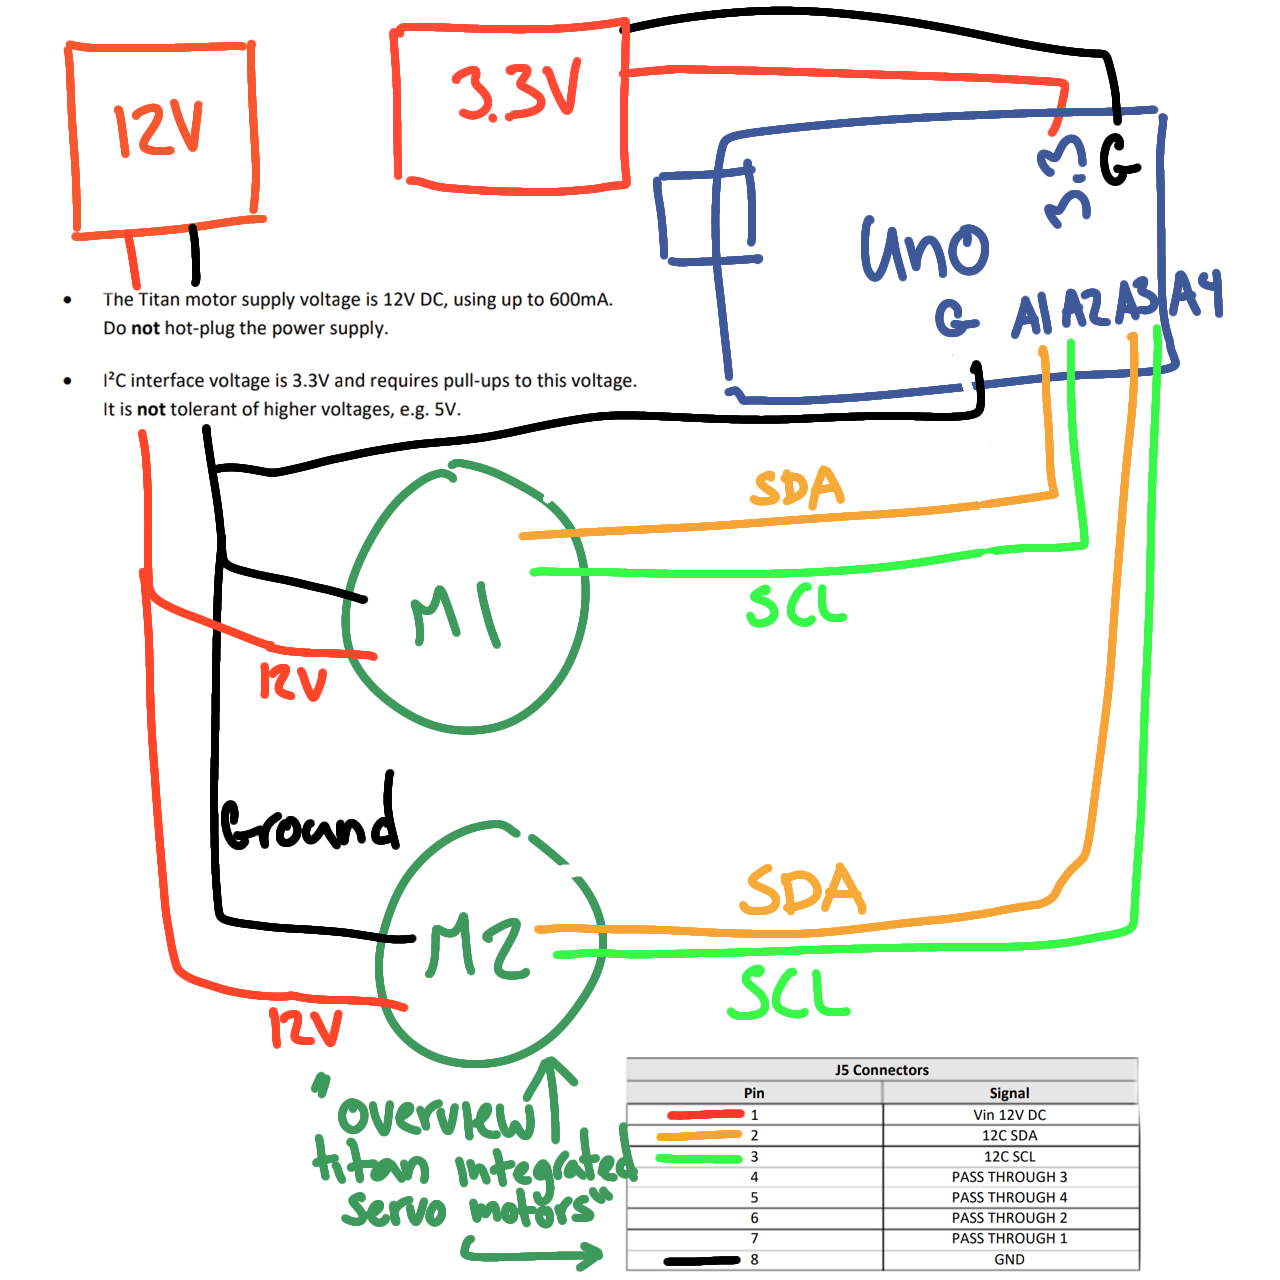 12V
3.3V
3.3
G
Uno
G A1 A2 A3 A4
• The Titan motor supply voltage is 12V DC, using up to 600mA.
Do not hot-plug the power supply.
• I²C interface voltage is 3.3V and requires pull-ups to this voltage.
It is not tolerant of higher voltages, e.g. 5V.
SDA
SCL
M1
12V
Ground
SDA
M2
SCL
12V
"overview
titan integrated
servo motors"
J5 Connectors
Pin Signal
1 Vin 12V DC
2 12C SDA
3 12C SCL
4 PASS THROUGH 3
5 PASS THROUGH 4
6 PASS THROUGH 2
7 PASS THROUGH 1
8 GND